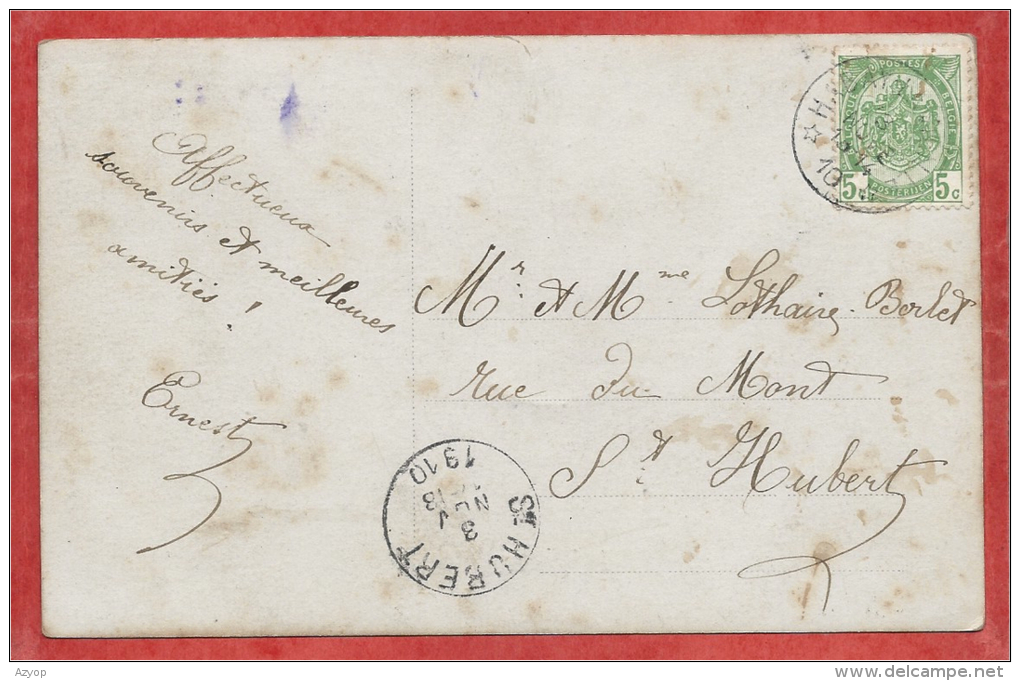 Affectueux
souvenirs et meilleures
amitiés !
Ernest
Mr. et Mme Lothaire-Borlet
rue du Mont
St Hubert
POSTES
BELGIQUE BELGIË
5 5c
POSTERIJEN
10
St HUBERT
3
13
1910
Azyop
www.delcampe.net